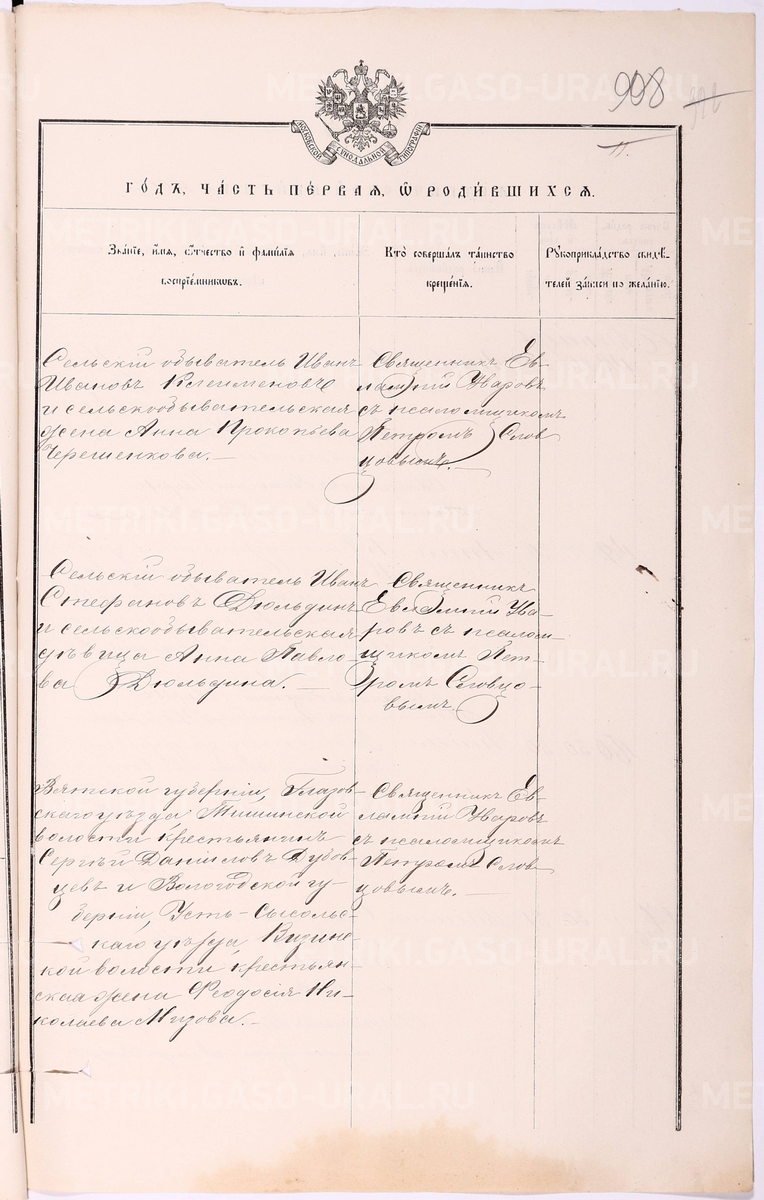 METRIKI.GASO-URAL.RU
908
11.
МОСКОВСКОЙ СѴНОДАЛЬНОЙ ТИПОГРАФІИ
ГОДЪ, ЧАСТЬ ПЕРВАЯ, Ѡ РОДИВШИХСЯ.
Званіе, имя, отчество и фамилія воспріемниковъ.
Кто совершалъ таинство крещенія.
Рукоприкладство свидѣтелей записи по желанію.
Сельскій обыватель Иванъ
Ивановъ Клейменовъ
и сельскообывательская
жена Анна Прокопьева
Черешенкова.
Священникъ Ев-
лампій Уваровъ
съ псаломщикомъ
Петромъ Слов
цовымъ.
Сельскій обыватель Иванъ
Стефановъ Дюльдинъ
и сельскообывательская
дѣвица Анна Павло-
ва Дюльдина.
Священникъ
Евлампій Ува-
ровъ съ псалом-
щикомъ Пет-
ромъ Словцо-
вымъ.
Вятской губерніи, Глазов-
скаго уѣзда Тишинской
волости крестьянинъ
Сергѣй Даніиловъ Дубов-
цевъ и Вологодской гу-
берніи, Усть-Сысоль-
скаго уѣзда, Визинс-
кой волости крестьян-
ская жена Ѳеодосія Ни-
колаева Мизова.
Священникъ Ев-
лампій Уваровъ
съ псаломщикомъ
Петромъ Слов-
цовымъ.